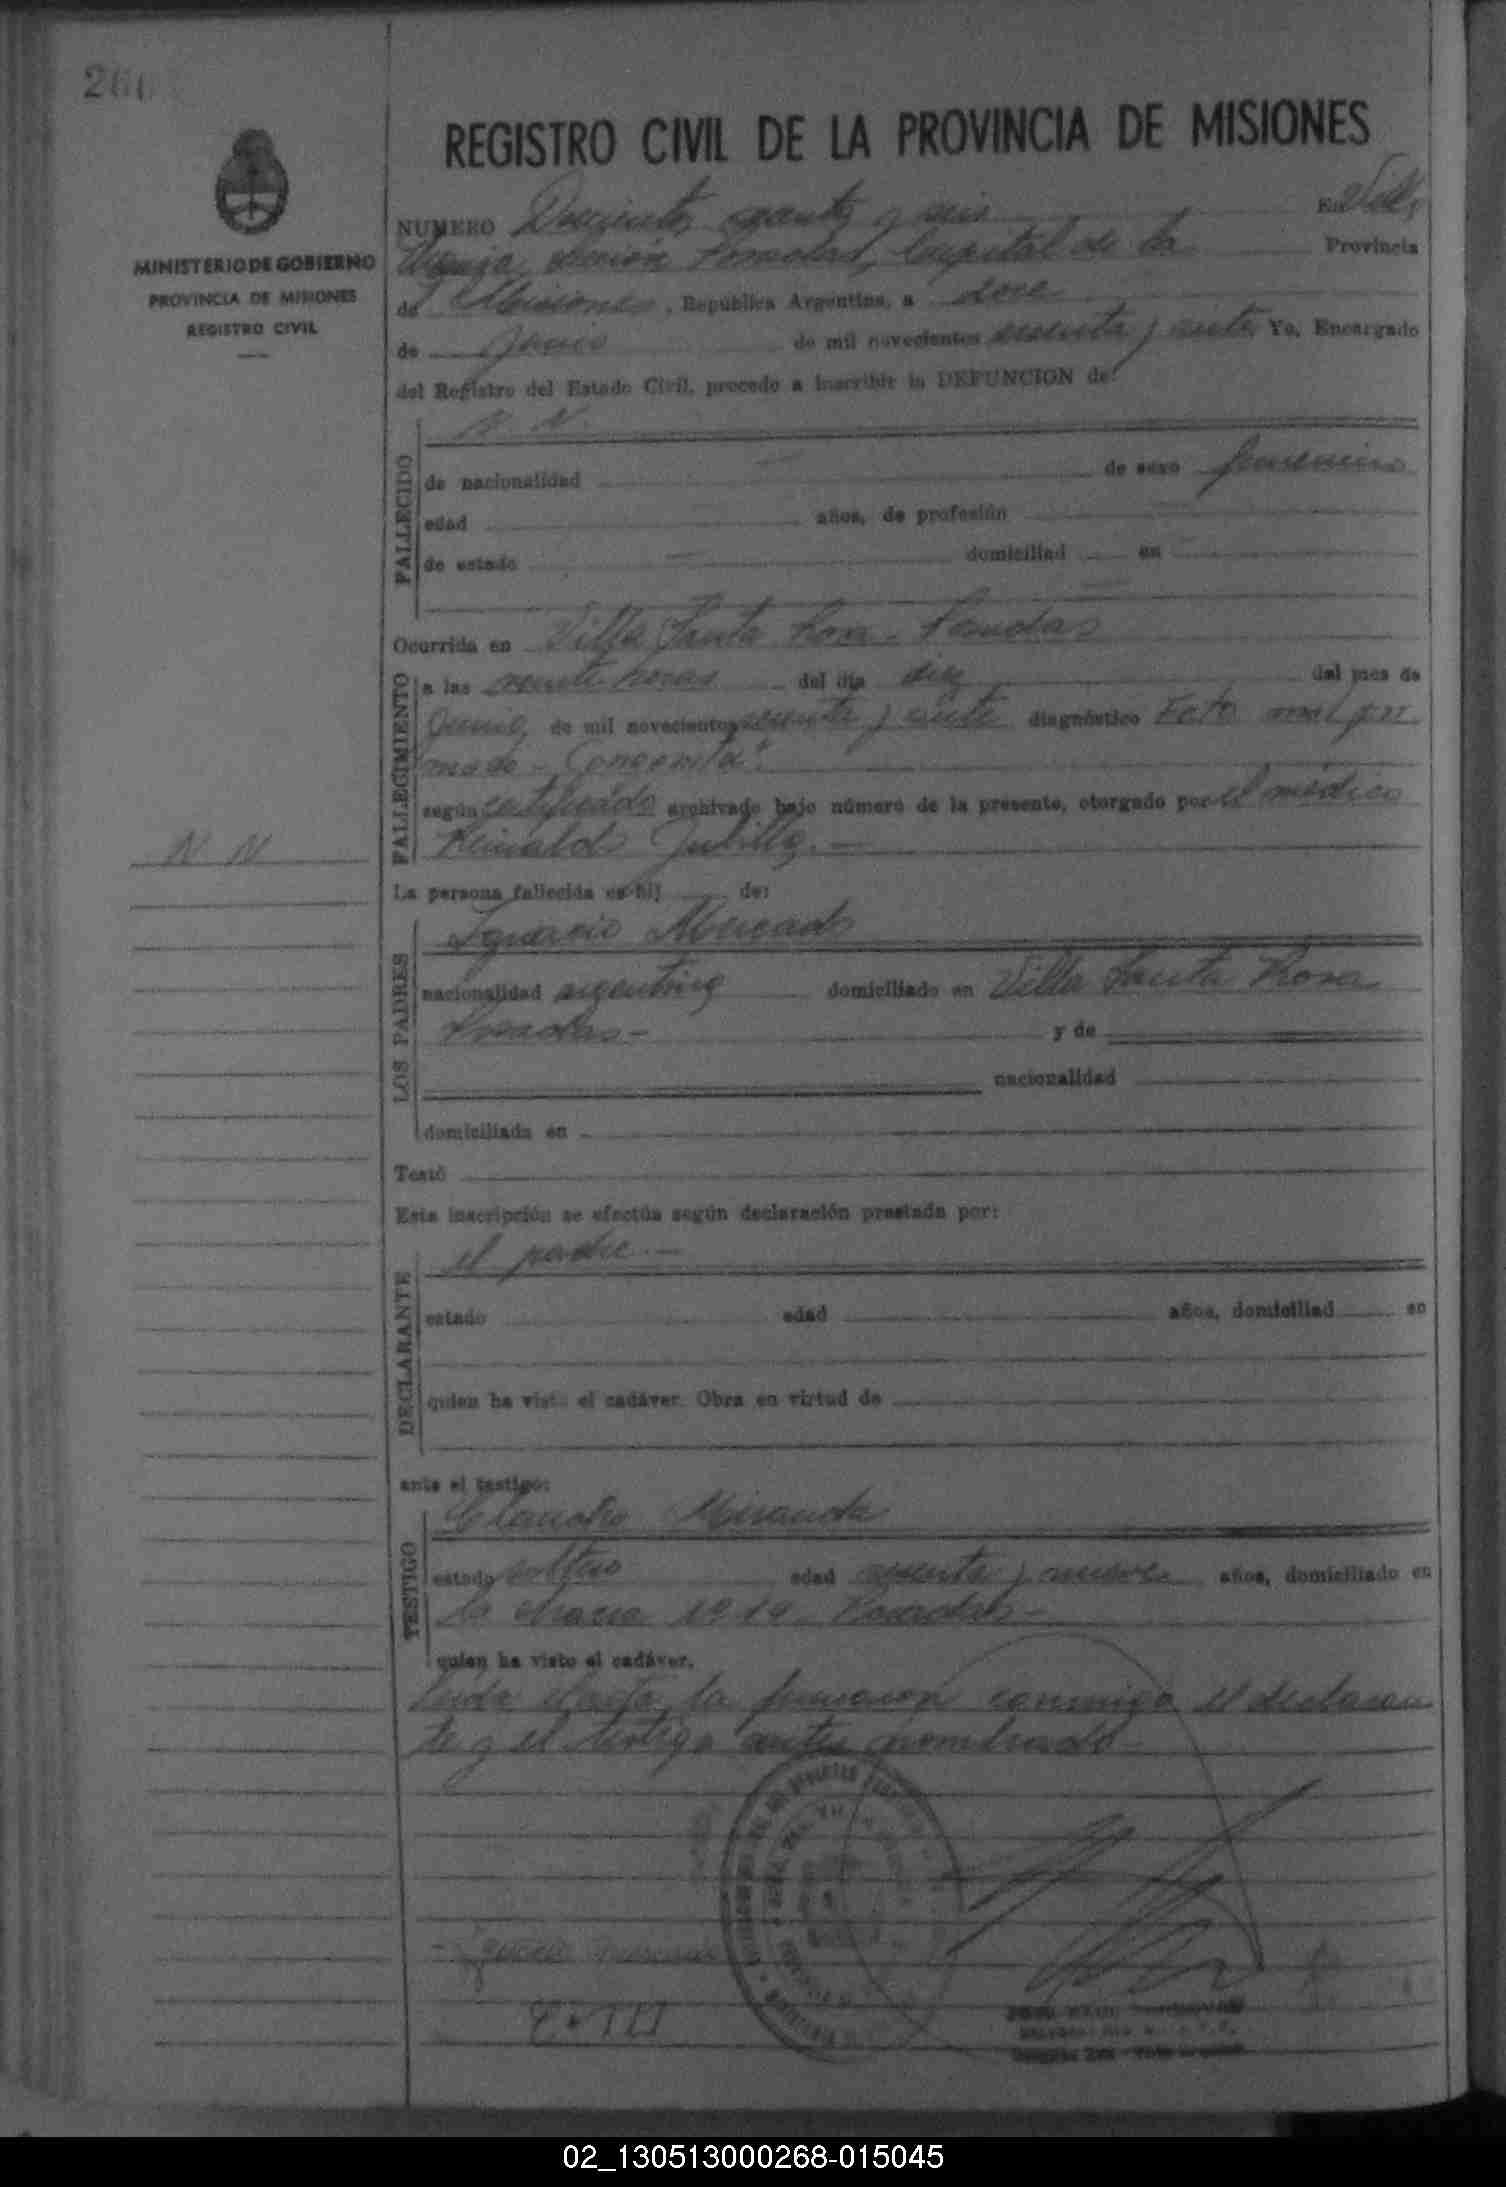 REGISTRO CIVIL DE LA PROVINCIA DE MISIONES
MINISTERIO DE GOBIERNO
PROVINCIA DE MISIONES
REGISTRO CIVIL
NUMERO Doscientos sesenta y seis En Villa
sección Posadas, Capital de la Provincia
de Misiones, República Argentina, a doce
de Junio de mil novecientos sesenta y siete Yo, Encargado
del Registro del Estado Civil, procedo a inscribir la DEFUNCION de:
FALLECIDO
N. N.
de nacionalidad — de sexo femenino
edad años, de profesión
de estado — domiciliad en —
Ocurrida en Villa Santa Rosa - Posadas
FALLECIMIENTO
a las veinte horas del día diez del mes de
Junio, de mil novecientos sesenta y siete diagnóstico Feto mal for
mado -
según certificado archivado bajo número de la presente, otorgado por el médico
Reinaldo
N N
La persona fallecida es hij de:
LOS PADRES
Ignacio Mercado
nacionalidad argentino domiciliado en Villa Santa Rosa
Posadas - y de
nacionalidad
domiciliada en
Testó
Esta inscripción se efectúa según declaración prestada por:
DECLARANTE
el padre. —
estado edad años, domiciliad en
quien ha visto el cadáver. Obra en virtud de
ante el testigo:
TESTIGO
Claudio Miranda
estado soltero edad sesenta y nueve años, domiciliado en
la chacra Nº 19 - Posadas -
quien ha visto el cadáver.
Leida el acta, la firmaron conmigo el declaran
te y el testigo antes nombrado
02_130513000268-015045